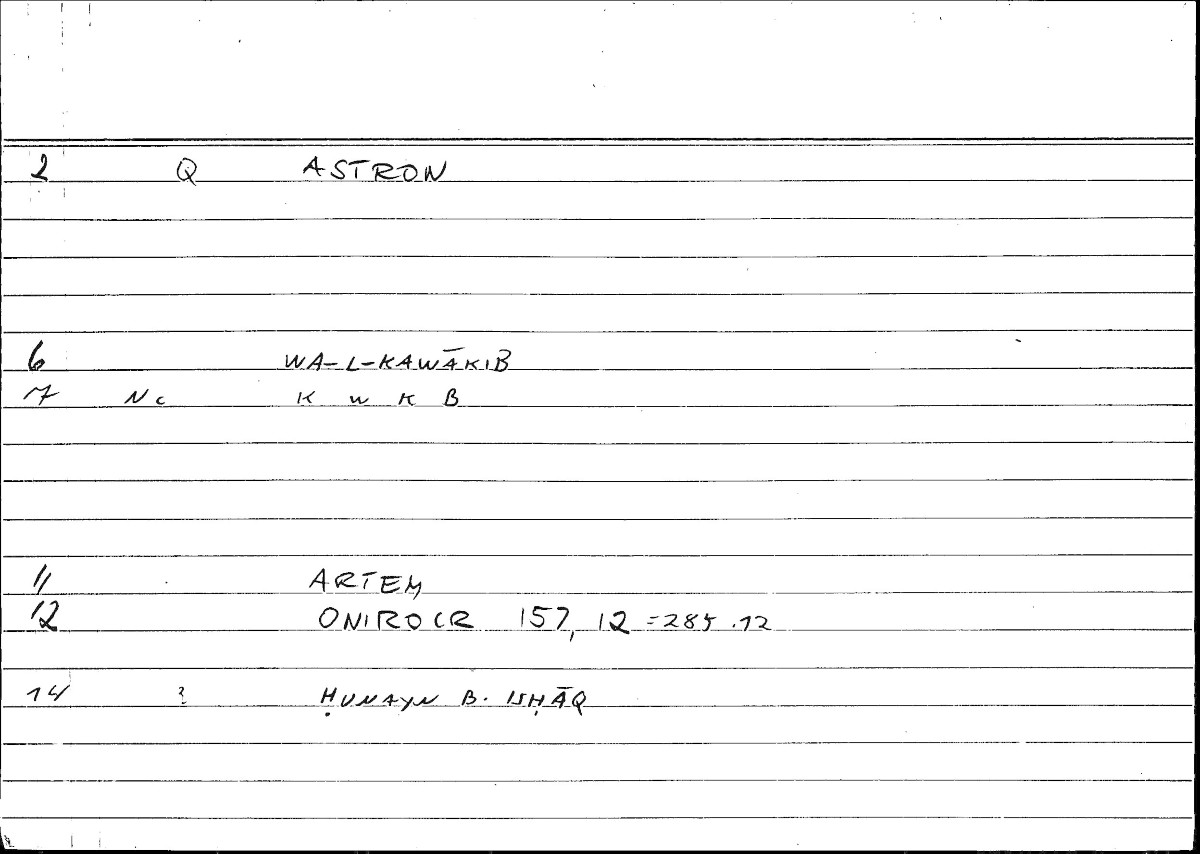 2 Q ASTRON
6 WA-L-KAWĀKIB
7 Nc K W K B
11 ARTEM
12 ONIROCR 157, 12 =285.12
14 ? ḤUNAYN B. ISḤĀQ